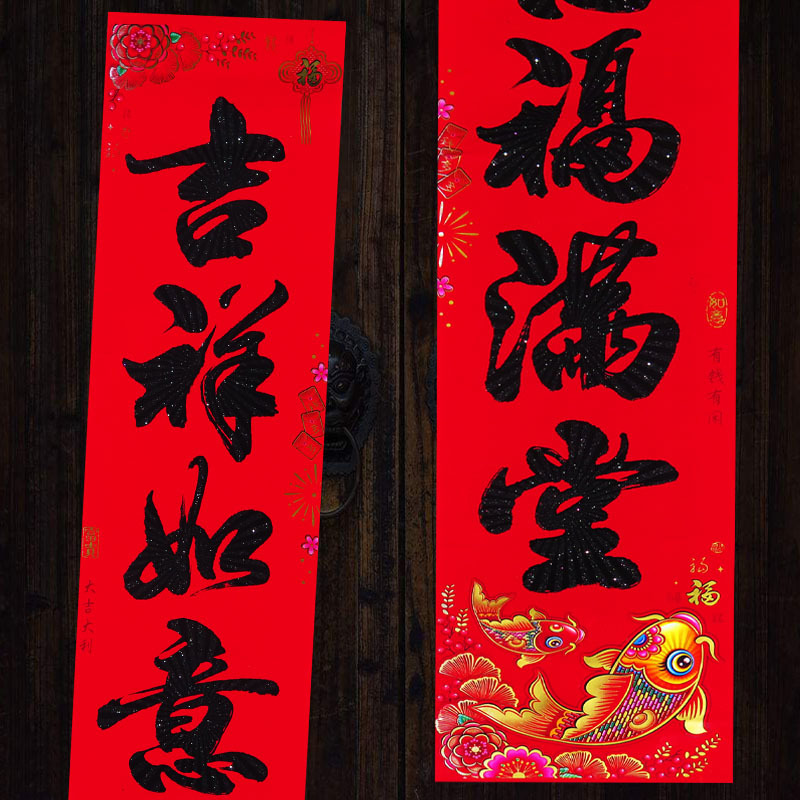 吉祥如意
福满堂
福
大吉大利
富贵
如意
有钱有闲
福
福